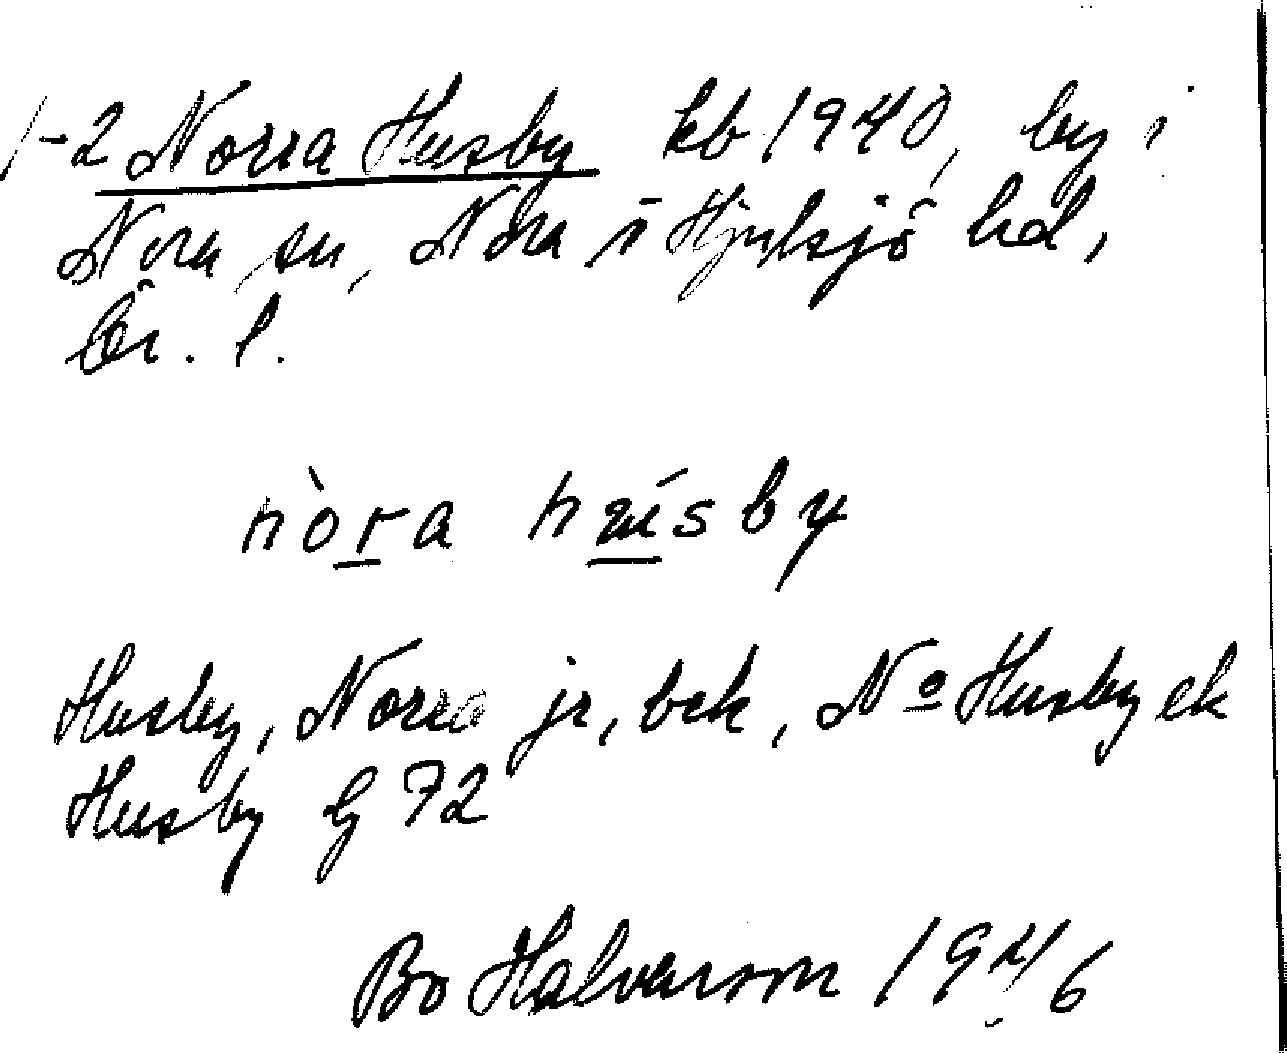 1-2 Norra Husby kb 1940, by i
Nora sn, Nora o Hjulsjö hd,
Ör. l.
nòra húsby
Husby, Norra jr, bek, No Husby ek
Husby G 72
Bo Halvarson 1946